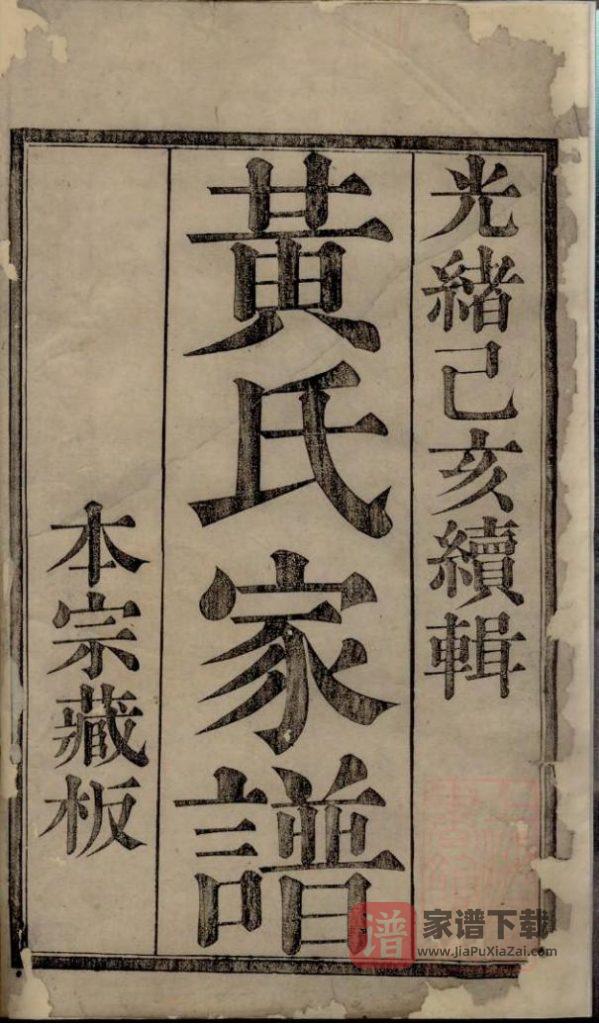 光緒己亥續輯
黃氏家譜
本宗藏板
谱 家谱下载
www.JiaPuXiaZai.com